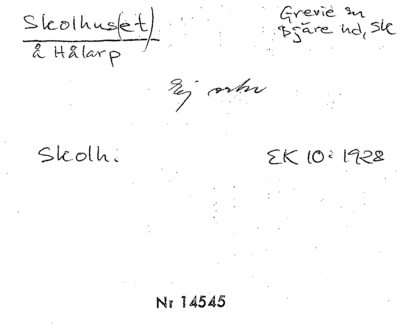 Skolhus(et)
Grevie sn
Bjäre hd, Sk
å Hålarp
Ej
Skolh.
EK 10: 1928
Nr 14545